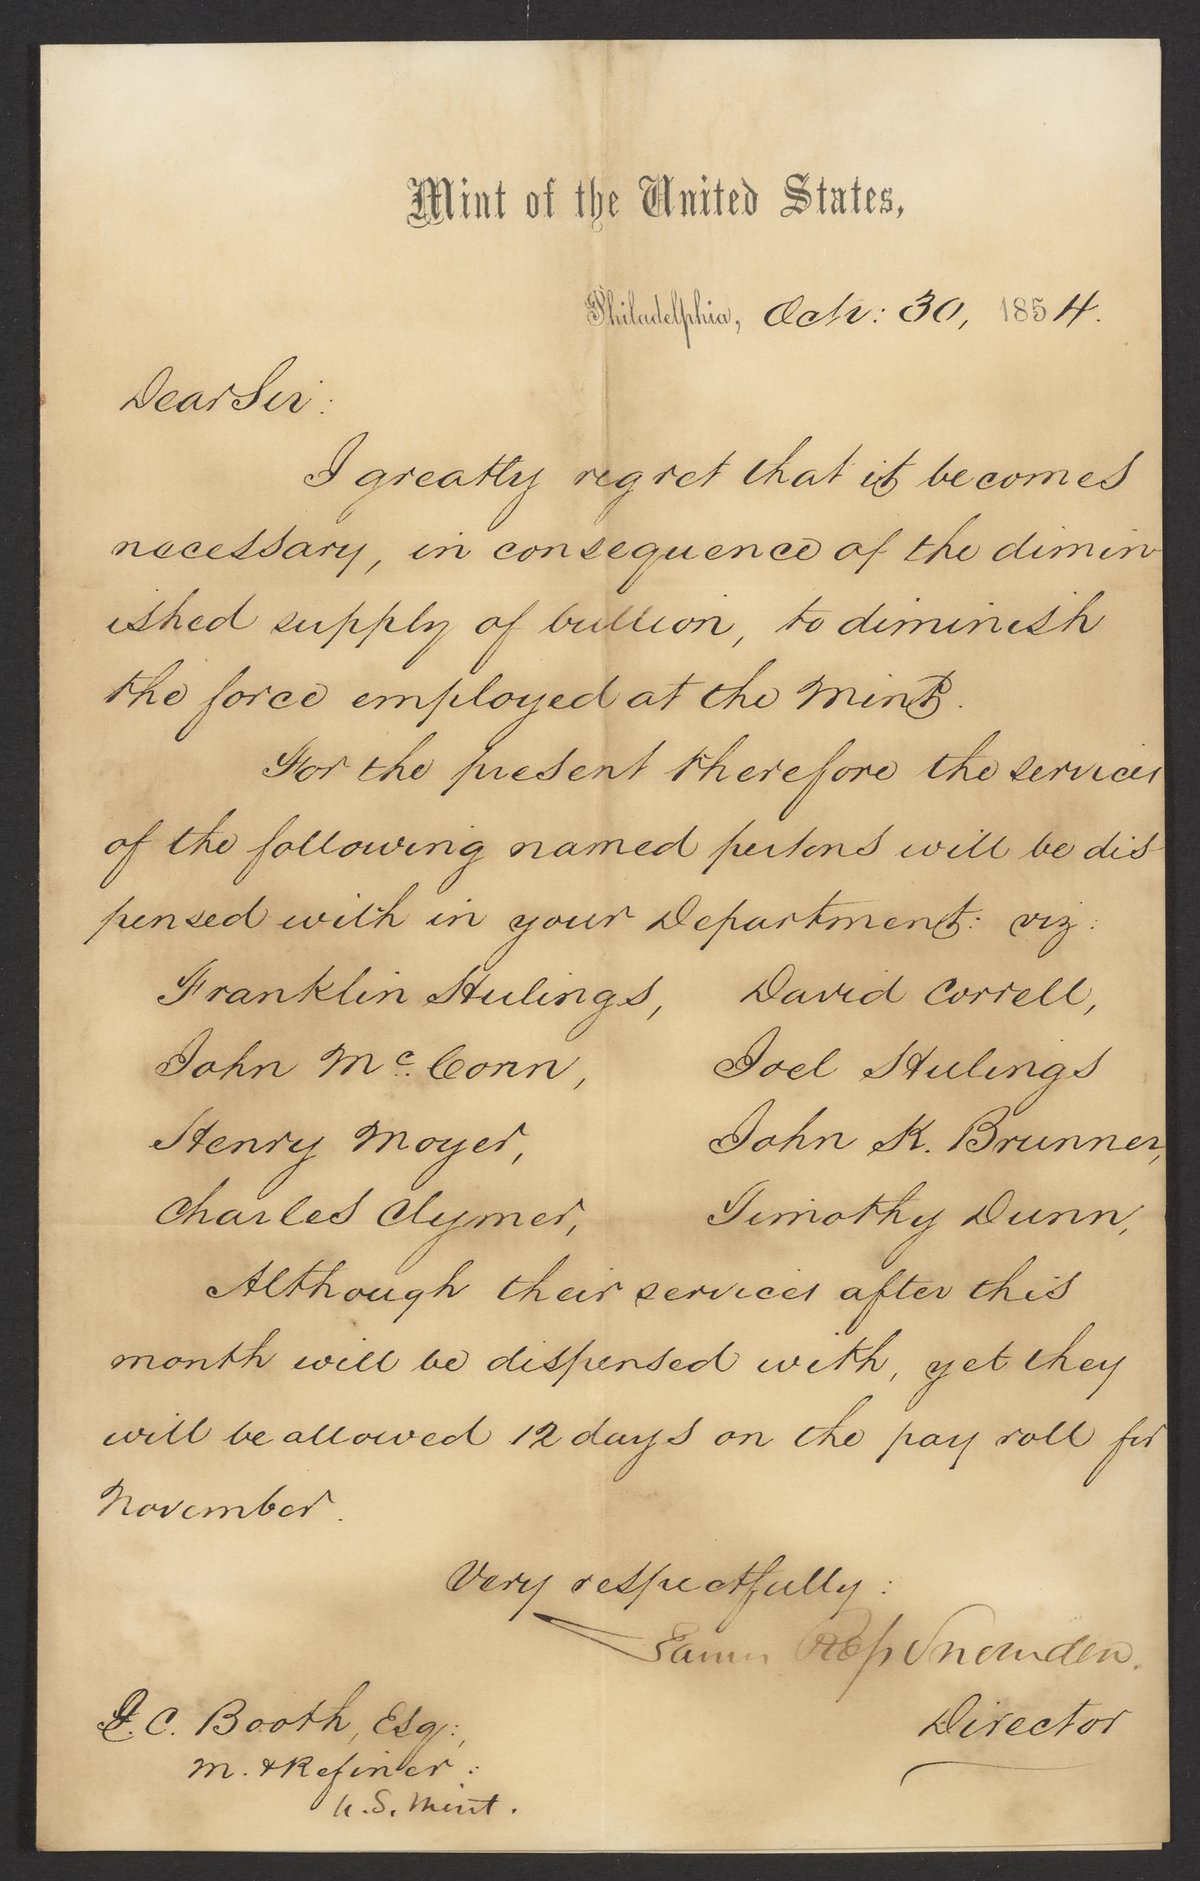 Mint of the United States,
Philadelphia, Oct: 30, 1854.
Dear Sir:
I greatly regret that it becomes
necessary, in consequence of the dimin-
ished supply of bullion, to diminish
the force employed at the Mint.
For the present therefore the services
of the following named persons will be dis-
pensed with in your Department: viz:
Franklin Hulings, David Correll,
John Mc. Conn, Joel Hulings
Henry Moyer, John K. Brunner,
Charles Clymer, Timothy Dunn,
Although their services after this
month will be dispensed with, yet they
will be allowed 12 days on the pay roll for
November.
Very respectfully:
Snowden.
Director
J. C. Booth, Esq:,
M. & Refiner:
U.S. Mint.